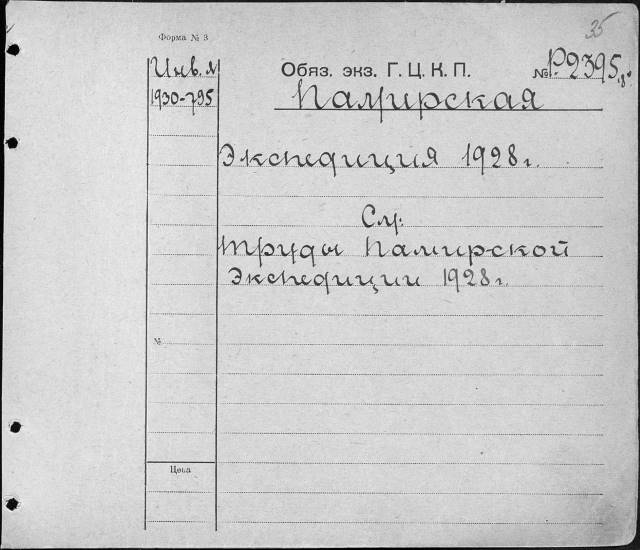 35
Форма № 3
Инв. №
Обяз. экз. Г. Ц. К. П.
№ Р.2395
1930-795
Памирская
Экспедиция 1928 г.
См:
Труды Памирской
Экспедиции 1928 г.
№
Цена